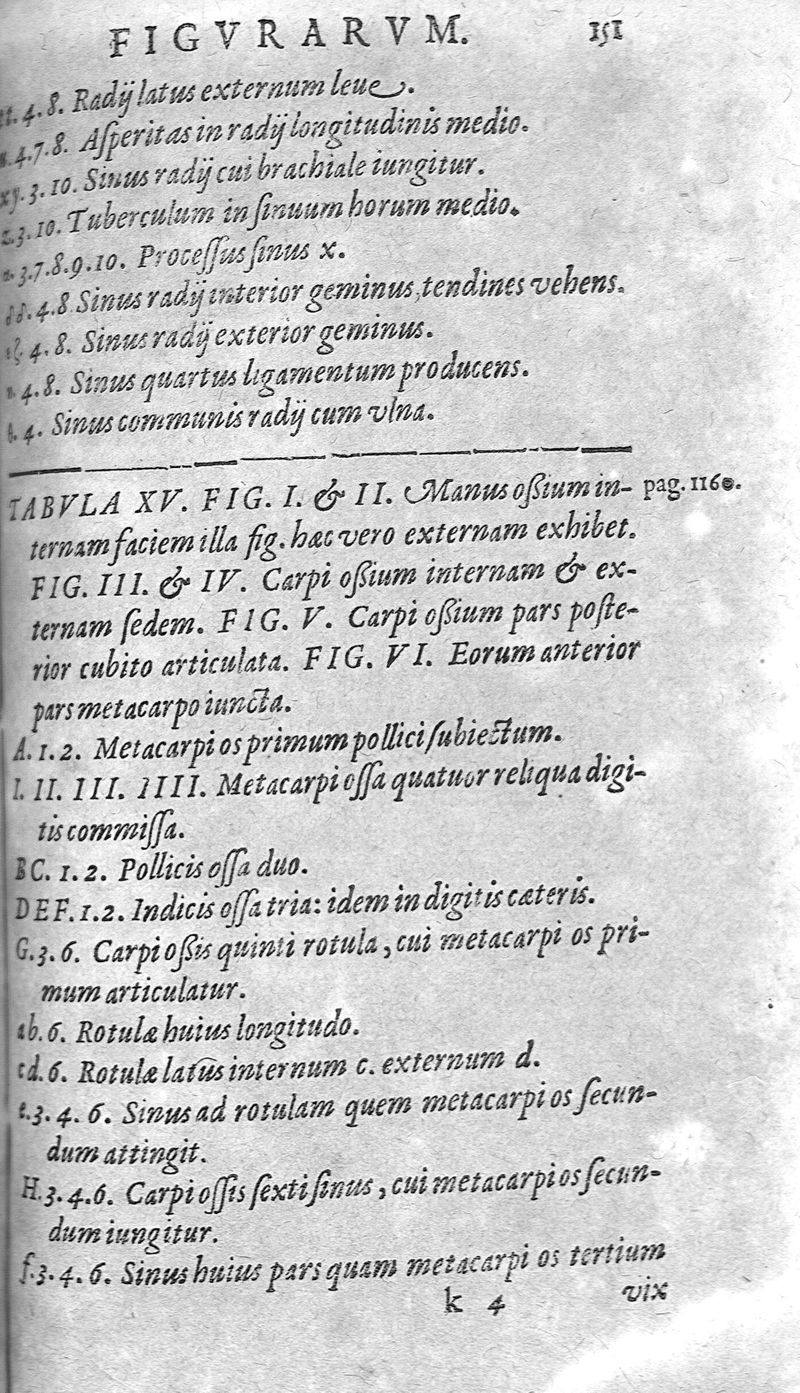 FIGVRARVM. 151
4. 8. Radij latus externum leue.
4. 7. 8. Aſperitas in radij longitudinis medio.
xy. 3. 10. Sinus radij cui brachiale iungitur.
z. 3. 10. Tuberculum in ſinuum horum medio.
3. 7. 8. 9. 10. Proceſſus ſinus x.
4. 8 Sinus radij interior geminus, tendines vehens.
4. 8. Sinus radij exterior geminus.
4. 8. Sinus quartus ligamentum producens.
4. Sinus communis radij cum vlna.
TABVLA XV. FIG. I. & II. Manus oßium in- pag. 116.
ternam faciem illa fig. hæc vero externam exhibet.
FIG. III. & IV. Carpi oßium internam & ex-
ternam ſedem. FIG. V. Carpi oßium pars poſte-
rior cubito articulata. FIG. VI. Eorum anterior
pars metacarpo iuncta.
A. 1. 2. Metacarpi os primum pollici ſubiectum.
I. II. III. IIII. Metacarpi oſſa quatuor reliqua digi-
tis commiſſa.
BC. 1. 2. Pollicis oſſa duo.
DEF. 1. 2. Indicis oſſa tria: idem in digitis cæteris.
G. 3. 6. Carpi oßis quinti rotula, cui metacarpi os pri-
mum articulatur.
ab. 6. Rotulæ huius longitudo.
cd. 6. Rotulæ latus internum c. externum d.
e. 3. 4. 6. Sinus ad rotulam quem metacarpi os ſecun-
dum attingit.
H. 3. 4. 6. Carpi oſſis ſexti ſinus, cui metacarpi os ſecun-
dum iungitur.
f. 3. 4. 6. Sinus huius pars quam metacarpi os tertium
k 4 vix